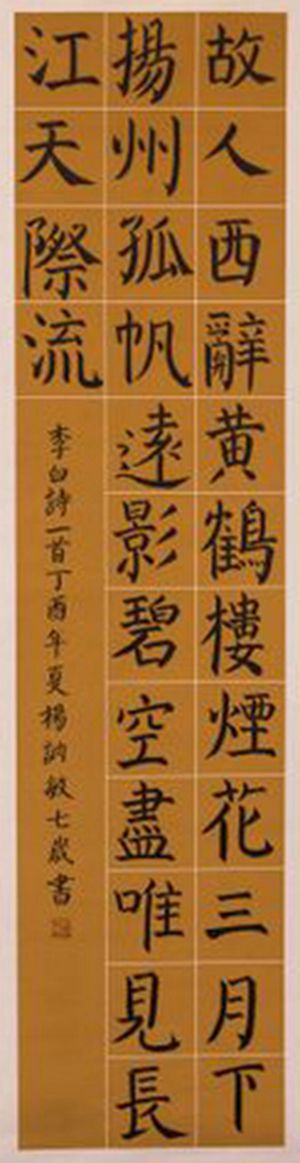 故人西辭黄鶴樓煙花三月下
揚州孤帆遠影碧空盡唯見長
江天際流
李白詩一首丁酉年夏楊訥敏七歲書